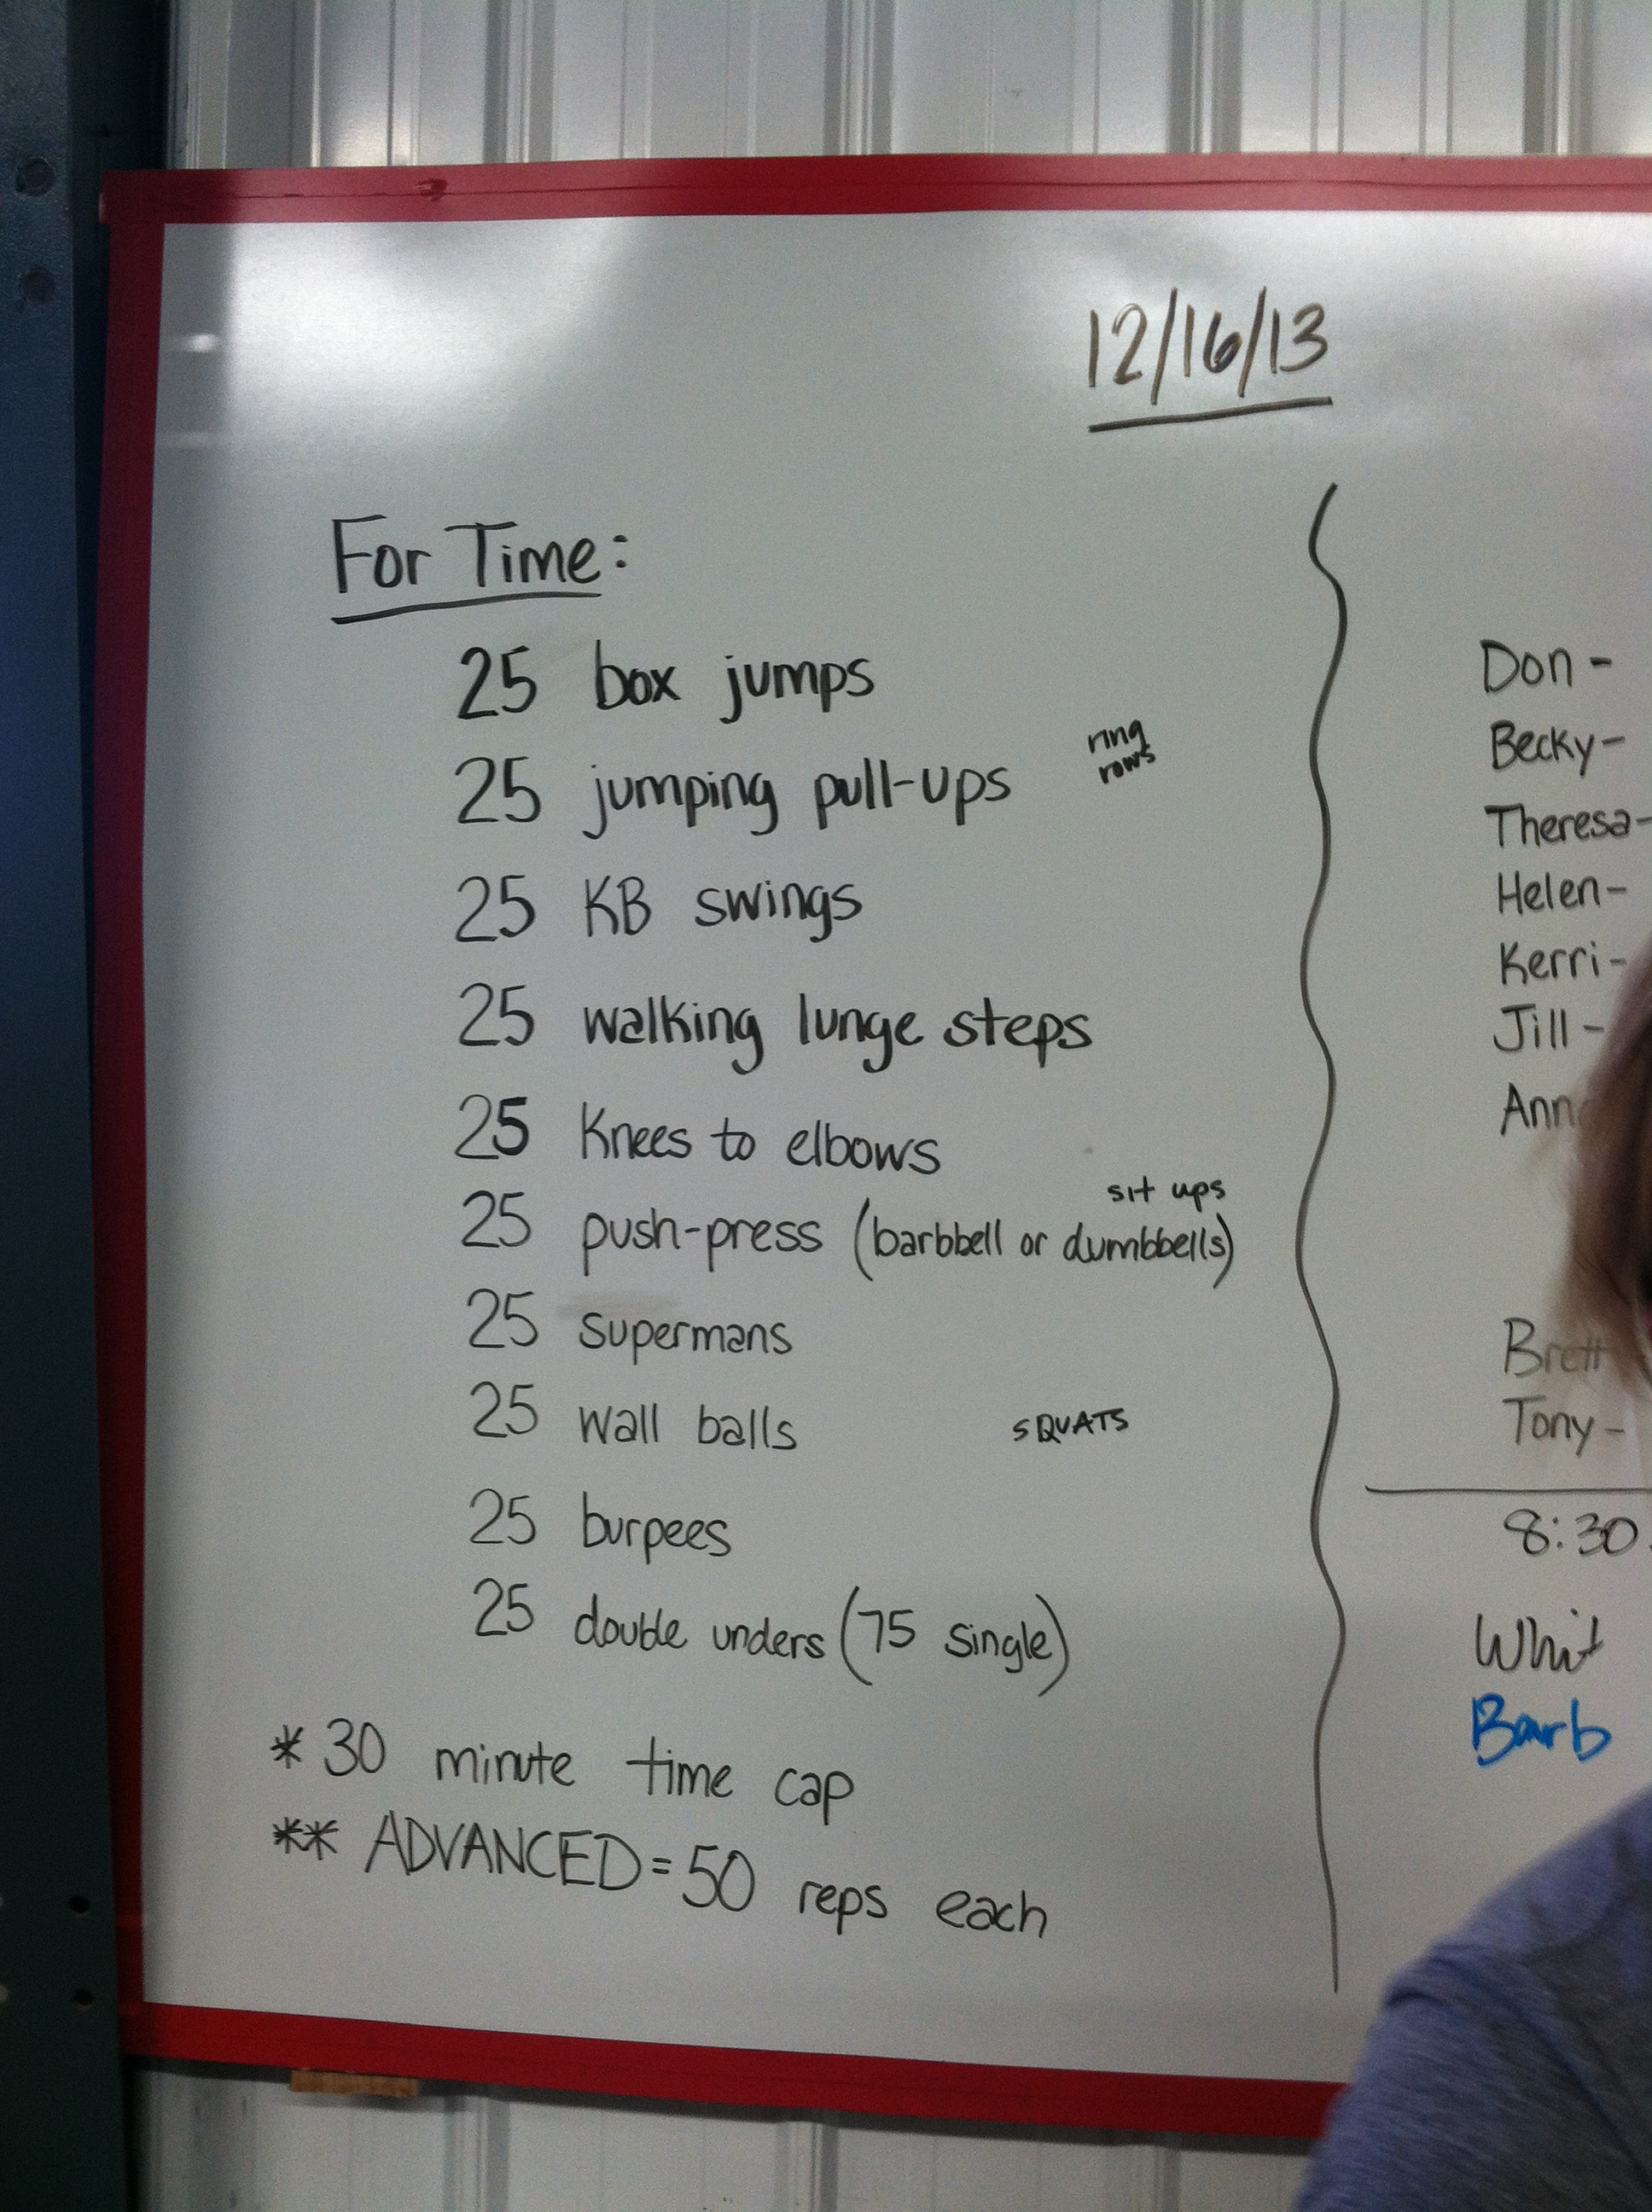 12/16/13
For Time:
25 box jumps
25 jumping pull-ups
ring
rows
25 KB swings
25 walking lunge steps
25 Knees to elbows
sit ups
25 push-press (barbbell or dumbbells)
25 supermans
25 wall balls
SQUATS
25 burpees
25 double unders (75 single)
* 30 minute time cap
** ADVANCED = 50 reps each
Don -
Becky -
Theresa -
Helen -
Kerri -
Jill -
Brett
Tony -
8:30
Whit
Barb